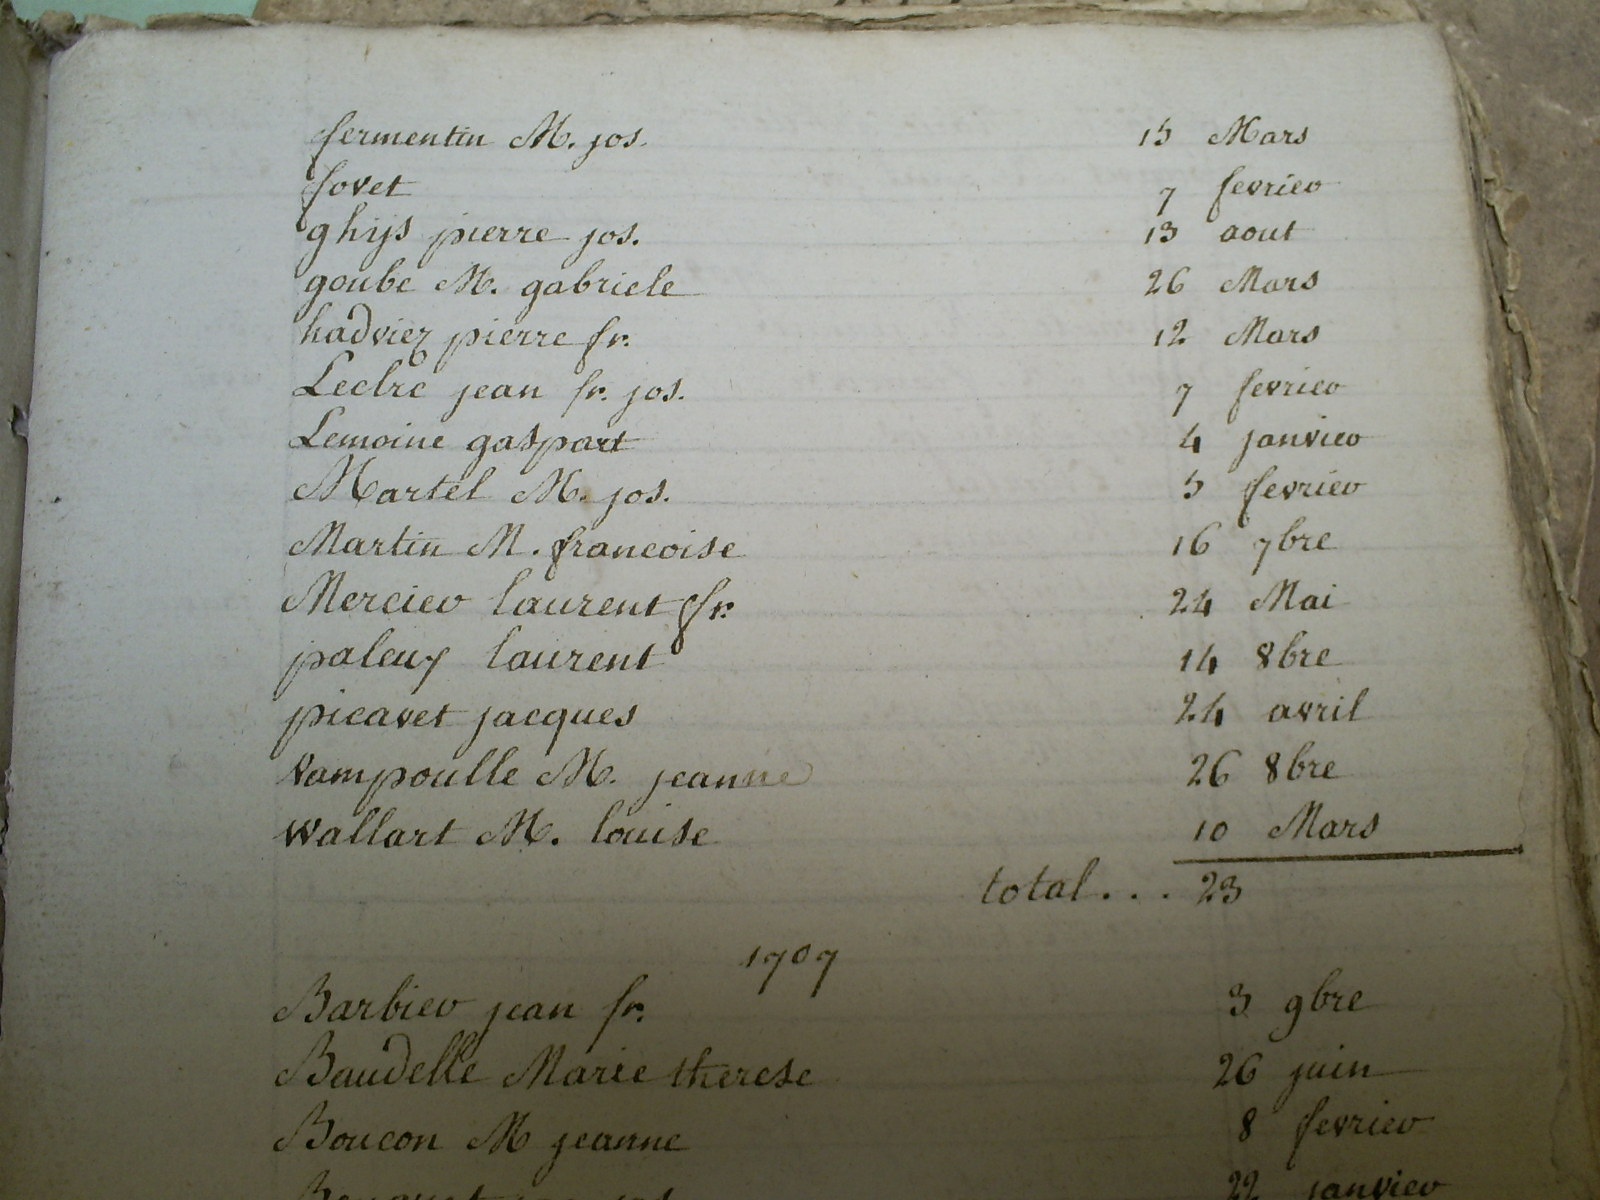 fermentin M. jos. 15 Mars
fovet 7 fevrier
ghijs pierre jos. 13 aout
goube M. gabriele 26 Mars
hadviez pierre fr. 12 Mars
Leclrc jean fr. jos. 7 fevrier
Lemoine gaspart 4 janvier
Martel M. jos. 5 fevrier
Martin M. francoise 16 7bre
Mercier laurent fr. 24 Mai
laurent 14 8bre
picavet jacques 24 avril
vampoulle M. jeanne 26 8bre
wallart M. louise 10 Mars
total... 23
1707
Barbier jean fr. 3 9bre
Baudelle Marie therese 26 juin
Boucon M jeanne 8 fevrier
22 janvier